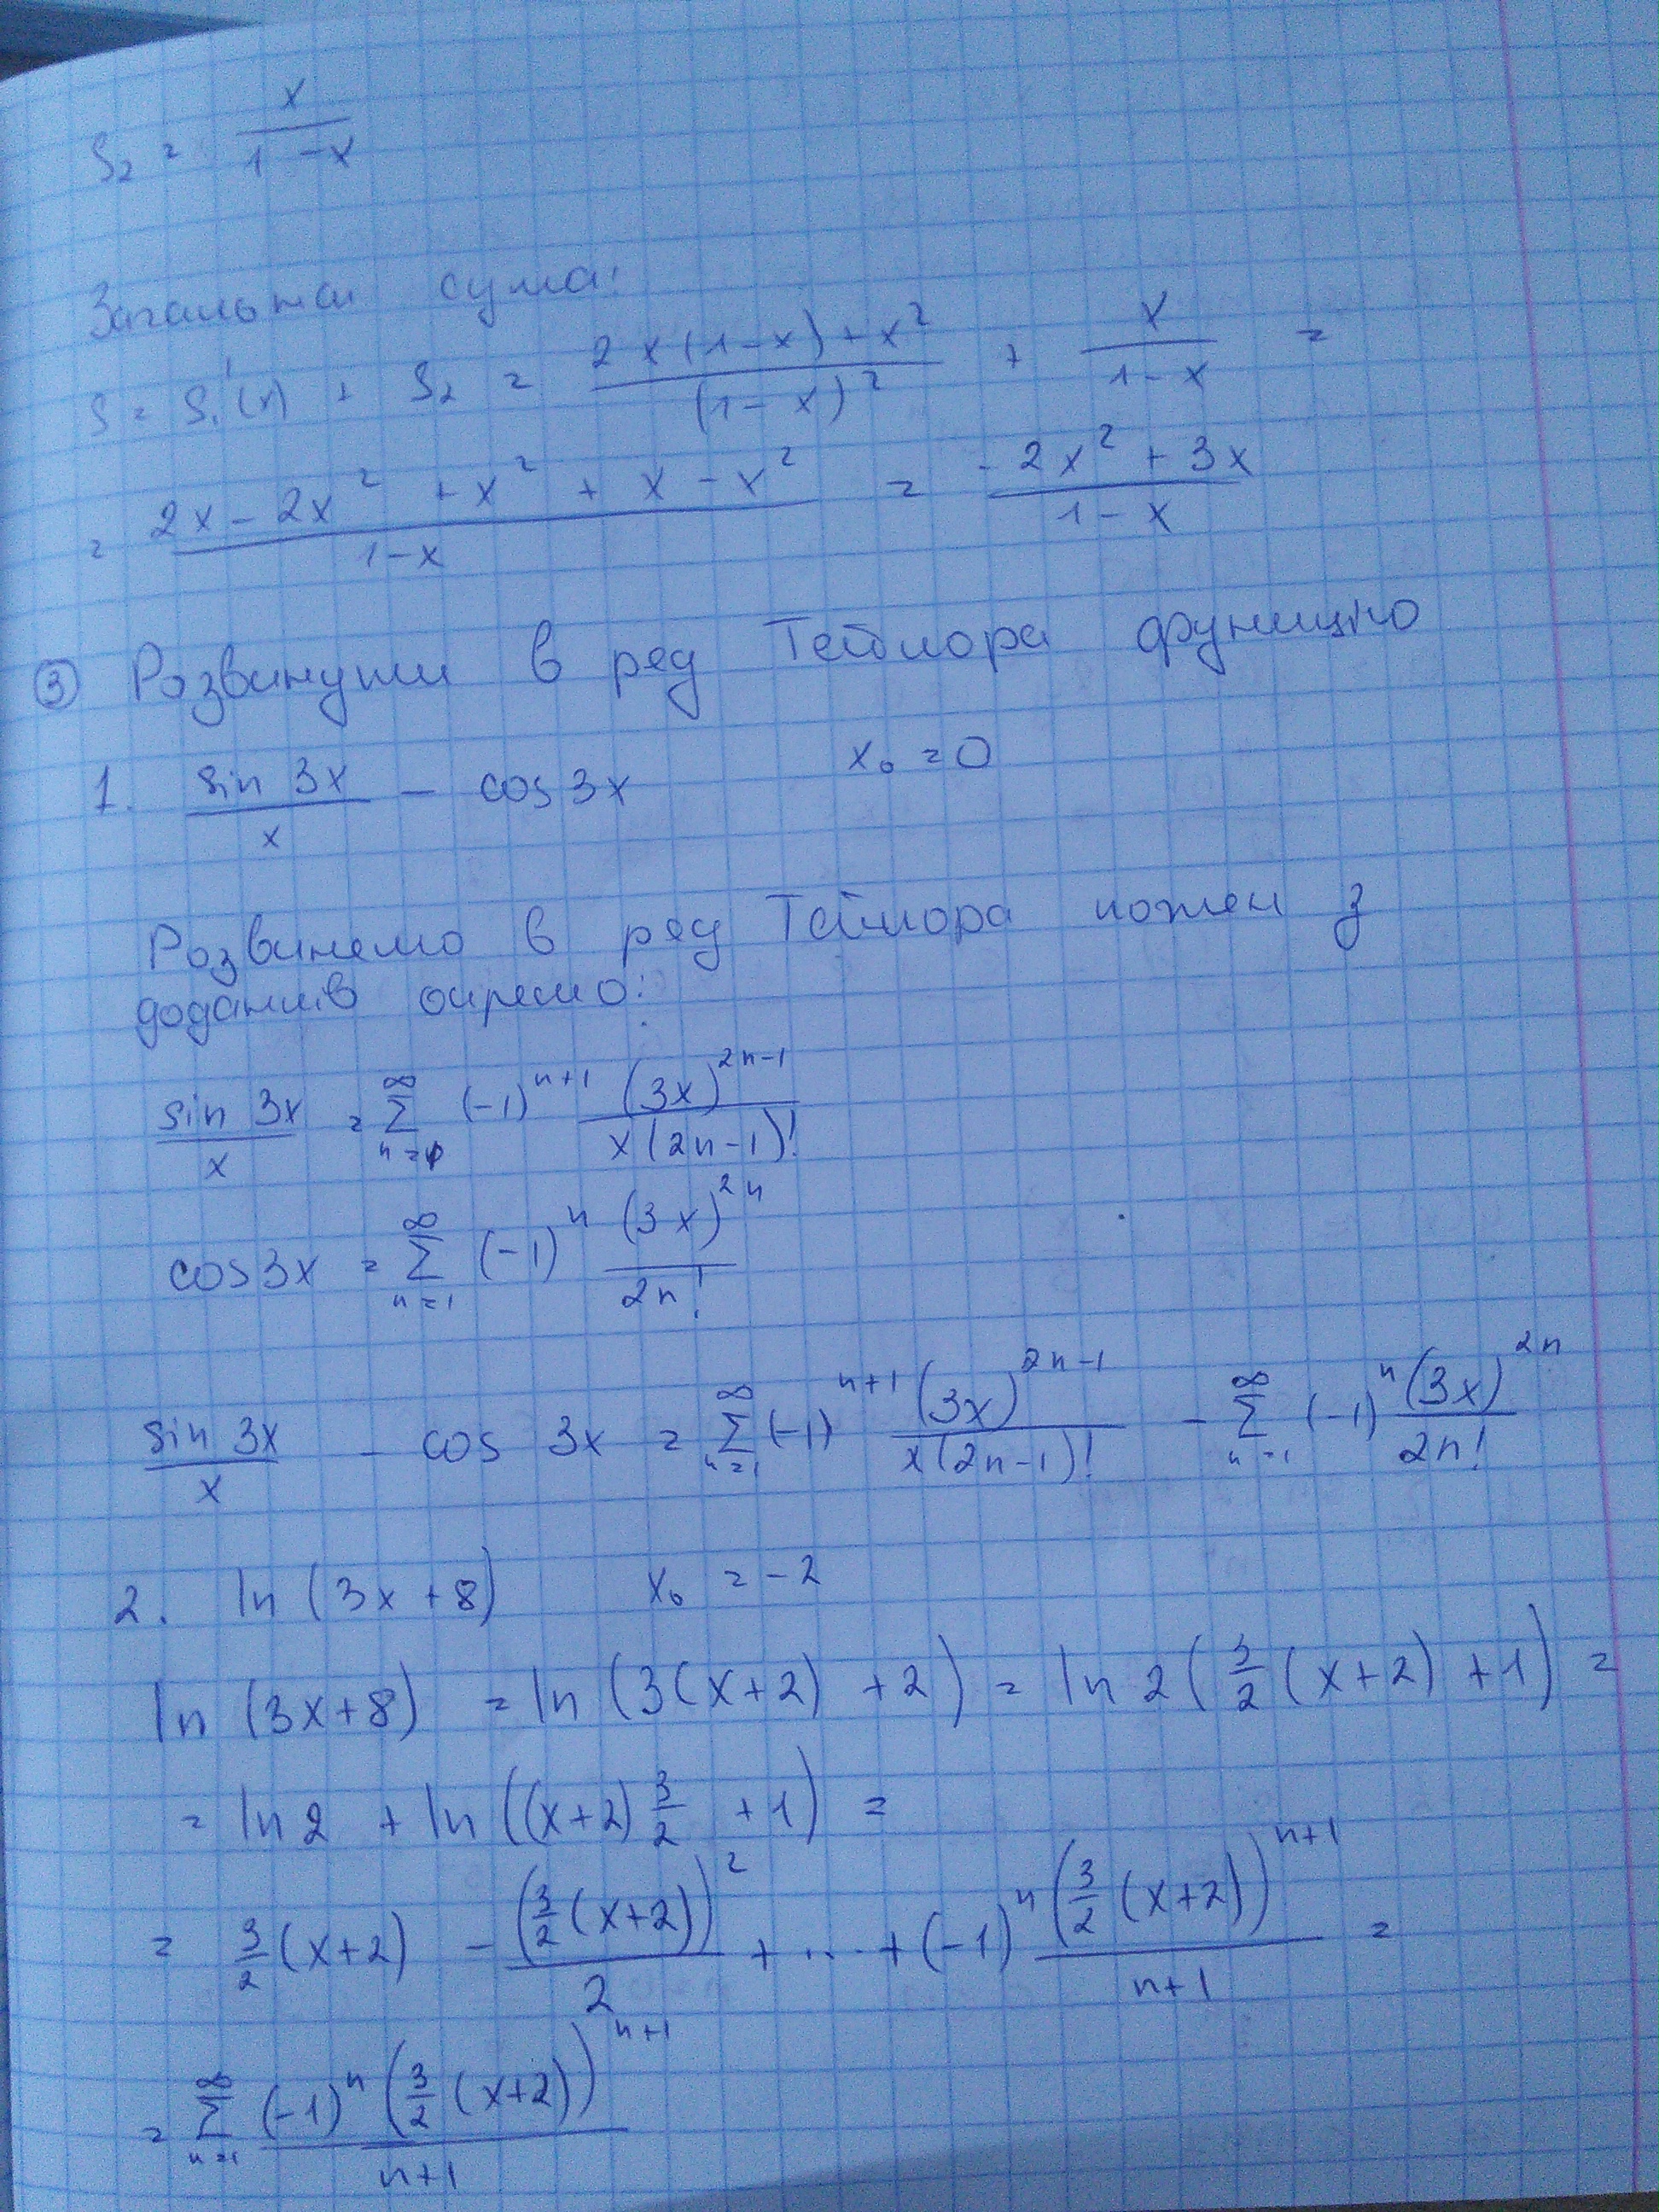 S₂ = x/(1-x)
Загальна сума:
S = S₁'(x) + S₂ = (2x(1-x)+x²)/(1-x)² + x/(1-x) =
= (2x - 2x² + x² + x - x²)/(1-x) = (-2x² + 3x)/(1-x)
③ Розвинути в ряд Тейлора функцію
1. sin 3x/x - cos 3x x₀ = 0
Розвинемо в ряд Тейлора кожен з
доданків окремо:
sin 3x/x = ∑_{n=1}^{∞} (-1)^{n+1} (3x)^{2n-1}/(x(2n-1)!)
cos 3x = ∑_{n=1}^{∞} (-1)^n (3x)^{2n}/2n!
sin 3x/x - cos 3x = ∑_{n=1}^{∞} (-1)^{n+1} (3x)^{2n-1}/(x(2n-1)!) - ∑_{n=1}^{∞} (-1)^n (3x)^{2n}/2n!
2. ln (3x+8) x₀ = -2
ln (3x+8) = ln (3(x+2) + 2) = ln 2(3/2 (x+2) + 1) =
= ln 2 + ln ((x+2) 3/2 + 1) =
= 3/2 (x+2) - (3/2 (x+2))²/2 + ... + (-1)^n (3/2 (x+2))^{n+1}/(n+1) =
= ∑_{n=1}^{∞} (-1)^n (3/2 (x+2))^{n+1}/(n+1)